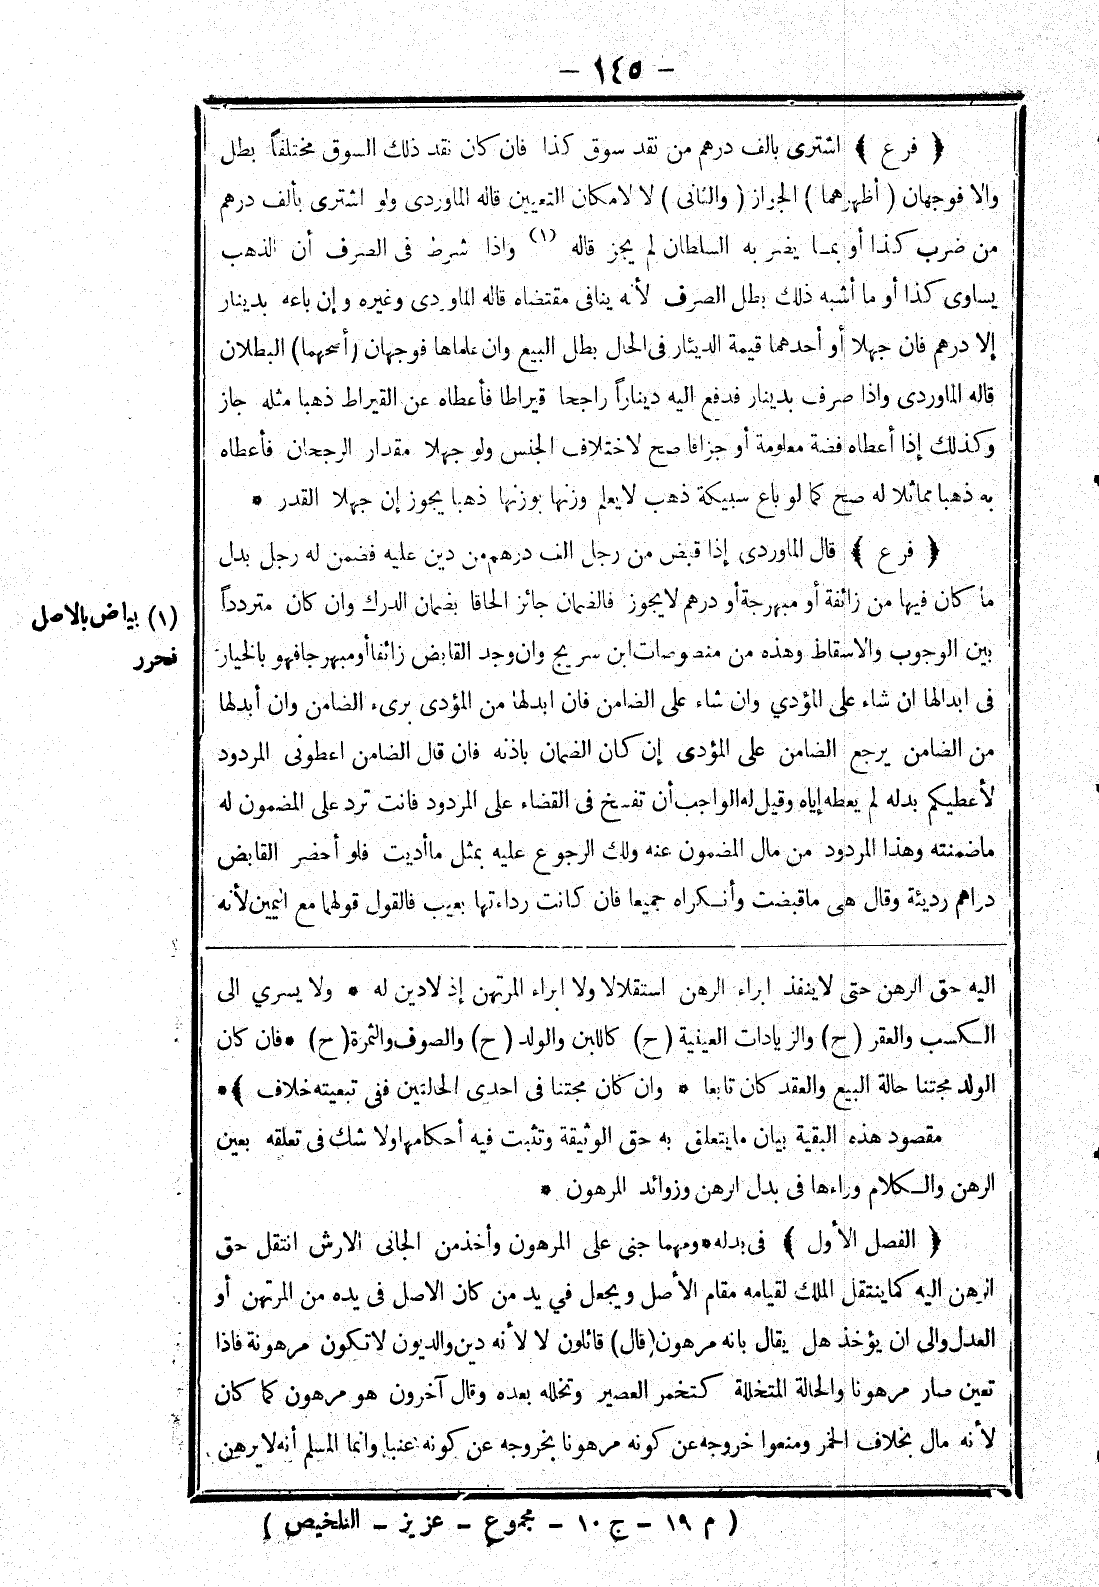 - ١٤٥ -
﴿ فرع ﴾ اشترى بالف درهم من نقد سوق كذا فان كان نقد ذلك السوق مختلفاً بطل
والا فوجهان ( أظهرهما ) الجواز ( والثانى ) لا لامكان التعيين قاله الماوردى ولو اشترى بألف درهم
من ضرب كذا أو بما يضر به السلطان لم يجز قاله (١) واذا شرط فى الصرف أن الذهب
يساوى كذا أو ما أشبه ذلك بطل الصرف لأنه ينافى مقتضاه قاله الماوردى وغيره وإن باعه بدينار
إلا درهم فان جهلا أو أحدهما قيمة الدينار فى الحال بطل البيع وان علماها فوجهان (أصحهما) البطلان
قاله الماوردى واذا صرف بدينار فدفع اليه ديناراً راجحا قيراطا فأعطاه عن القيراط ذهبا مثله جاز
وكذلك إذا أعطاه فضة معلومة أو جزافا صح لاختلاف الجنس ولو جهلا مقدار الرجحان فأعطاه
به ذهبا مماثلا له صح كما لو باع سبيكة ذهب لايعلم وزنها بوزنها ذهبا يجوز إن جهلا القدر *
﴿ فرع ﴾ قال الماوردى إذا قبض من رجل الف درهم من دين عليه فضمن له رجل بدل
ما كان فيها من زائفة أو مبهرجة أو درهم لايجوز فالضمان جائز الحاقا بضمان الدرك وان كان مترددا
بين الوجوب والاسقاط وهذه من منصوصات ابن سريج وان وجد القابض زائفا أو مبهرجا فهو بالخيار
فى ابدالها ان شاء على المؤدي وان شاء على الضامن فان ابدلها من المؤدى برىء الضامن وان أبدلها
من الضامن يرجع الضامن على المؤدى إن كان الضمان باذنه فان قال الضامن اعطونى المردود
لأعطيكم بدله لم يعطه إياه وقيل له الواجب أن تفسخ فى القضاء على المردود فانت ترد على المضمون له
ماضمنته وهذا المردود من مال المضمون عنه ولك الرجوع عليه بمثل ما أديت فلو أحضر القابض
دراهم رديئة وقال هى ماقبضت وأنكراه جميعا فان كانت رداءتها بعيب فالقول قولهما مع اليمين لأنه
(١) بياض بالاصل
فحرر
اليه حق الرهن حتى لاينفذ ابراء الرهن استقلالا ولا ابراء المرتهن إذ لادين له * ولا يسري الى
الكسب والعقر (ح) والزيادات العينية (ح) كاللبن والولد (ح) والصوف والثمرة (ح) * فان كان
الولد مجتنا حالة البيع والعقد كان تابعا * وان كان مجتنا فى احدى الحالتين ففى تبعيته خلاف ﴾*
مقصود هذه البقية بيان مايتعلق به حق الوثيقة وتثبت فيه أحكامها ولا شك فى تعلقه بعين
الرهن والكلام وراءها فى بدل الرهن وزوائد المرهون *
﴿ الفصل الأول ﴾ فى بدله * ومهما جنى على المرهون وأخذ من الجانى الارش انتقل حق
الرهن اليه كما ينتقل الملك لقيامه مقام الأصل ويجعل في يد من كان الاصل فى يده من المرتهن أو
العدل والى ان يؤخذ هل يقال بانه مرهون (قال) قائلون لا لأنه دين والديون لاتكون مرهونة فاذا
تعين صار مرهونا والحالة المتخللة كتخمر العصير وتخلله بعده وقال آخرون هو مرهون كما كان
لأنه مال بخلاف الخمر ومنعوا خروجه عن كونه مرهونا بخروجه عن كونه عنبا وانما المسلم أنه لايرهن
( م ١٩ - ج ١٠ - مجموع - عزيز - التلخيص )